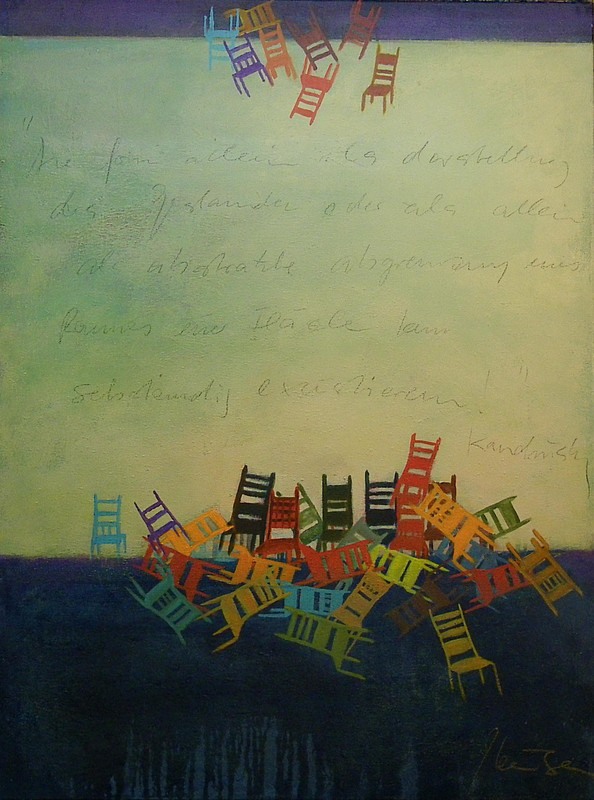 "Die form allein als darstellung
des oder als allein
als abstrakte abgrenzung eines
Raumes einer Fläche kann
selbständig existieren!"
Kandinsky